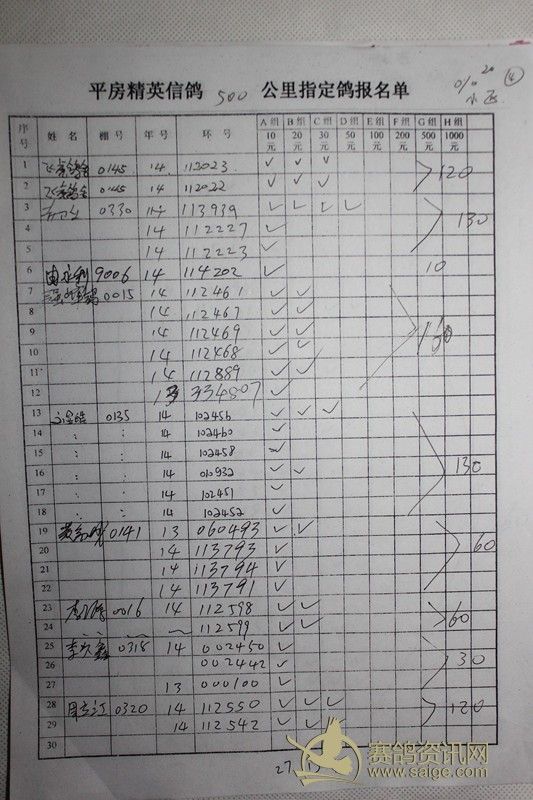 平房精英信鸽 500 公里指定鸽报名单
④
序号 姓名 棚号 年号 环号 A组10元 B组20元 C组30元 D组50元 E组100元 F组200元 G组500元 H组1000元
1 0145 14 112023 ✓ ✓ ✓
2 0145 14 112022 ✓ ✓ ✓ 120
3 0330 14 113939 ✓ ✓ ✓ ✓
4 14 112227 ✓ 130
5 14 112223 ✓
6 9006 14 114202 ✓ 10
7 0015 14 112461 ✓ ✓
8 14 112467 ✓ ✓
9 14 112469 ✓ ✓
10 14 112468 ✓ ✓
11 14 112889 ✓ ✓
12 13 334807 ✓
13 0135 14 102456 ✓ ✓ ✓
14 : : 14 102460 ✓
15 : : 14 102458 ✓
16 : : 14 010932 ✓ ✓ 130
17 : : 14 102451 ✓
18 : : 14 102452 ✓
19 0141 13 060493 ✓ ✓
20 14 113793 ✓ 60
21 14 113794 ✓
22 14 113791 ✓
23 0016 14 112598 ✓ ✓
24 112599 ✓ ✓ 60
25 0318 14 002450 ✓
26 002442 ✓ 30
27 13 000100 ✓
28 0320 14 112550 ✓ ✓ ✓ 120
29 14 112542 ✓ ✓ ✓
30
27
赛鸽资讯网
www.saige.com